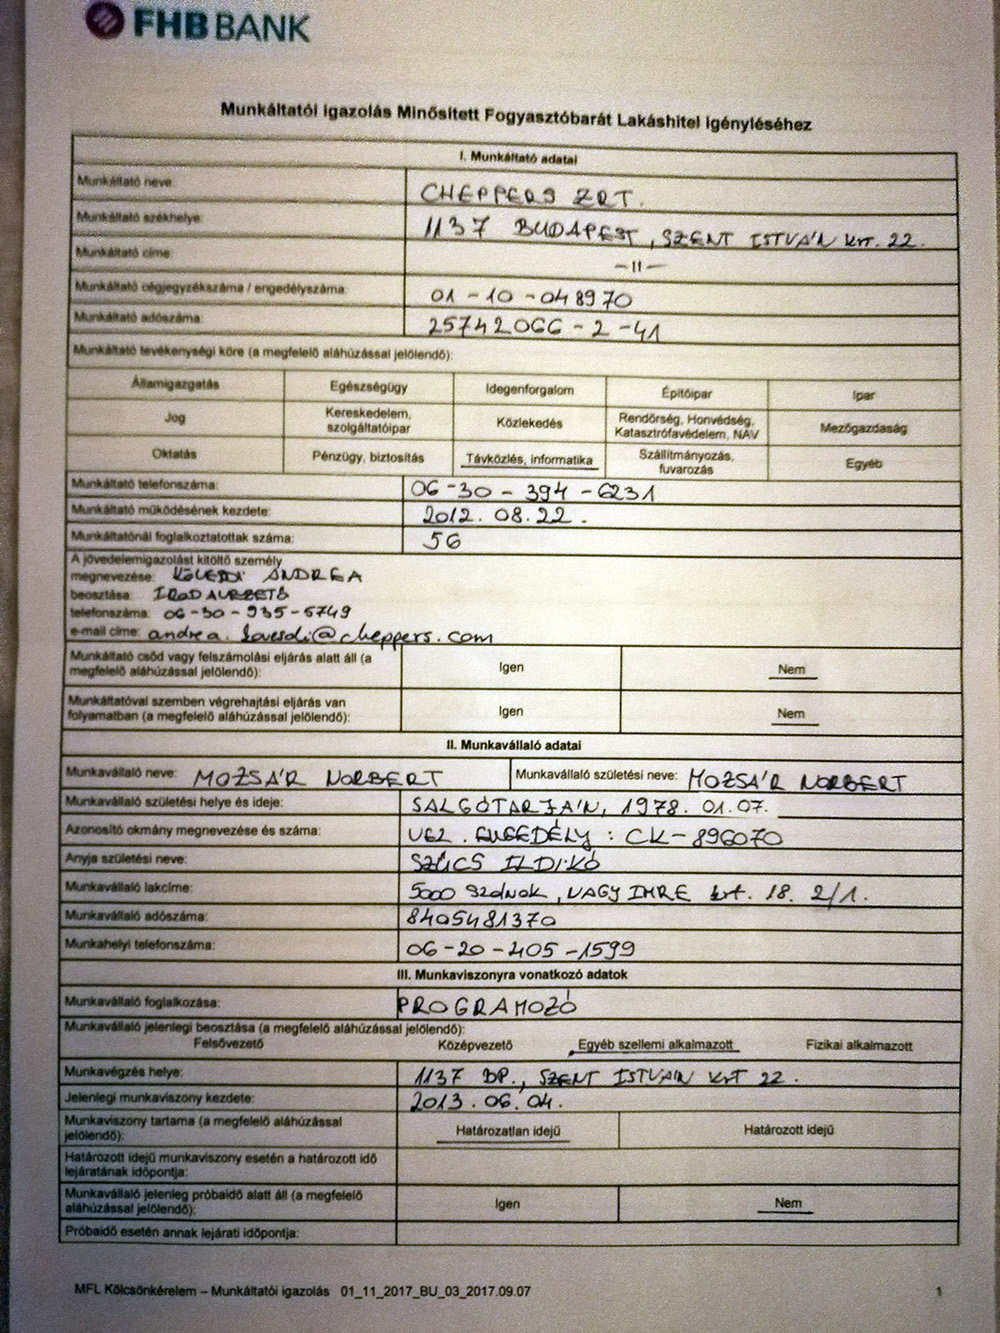 FHB BANK
Munkáltatói igazolás Minősített Fogyasztóbarát Lakáshitel igényléséhez
I. Munkáltató adatai
Munkáltató neve: CHEPPERS ZRT.
Munkáltató székhelye: 1137 BUDAPEST, SZENT ISTVÁN krt. 22.
Munkáltató címe: —II—
Munkáltató cégjegyzékszáma / engedélyszáma: 01-10-048970
Munkáltató adószáma: 25742066-2-41
Munkáltató tevékenységi köre (a megfelelő aláhúzással jelölendő):
Államigazgatás Egészségügy Idegenforgalom Építőipar Ipar
Jog Kereskedelem, szolgáltatóipar Közlekedés Rendőrség, Honvédség, Katasztrófavédelem, NAV Mezőgazdaság
Oktatás Pénzügy, biztosítás Távközlés, informatika Szállítmányozás, fuvarozás Egyéb
Munkáltató telefonszáma: 06-30-394-6231
Munkáltató működésének kezdete: 2012.08.22.
Munkáltatónál foglalkoztatottak száma: 56
A jövedelemigazolást kitöltő személy
megnevezése: ANDREA
beosztása: IRODAVEZETŐ
telefonszáma: 06-30-935-5749
e-mail címe: andrea.kovesdi@cheppers.com
Munkáltató csőd vagy felszámolási eljárás alatt áll (a megfelelő aláhúzással jelölendő): Igen Nem
Munkáltatóval szemben végrehajtási eljárás van folyamatban (a megfelelő aláhúzással jelölendő): Igen Nem
II. Munkavállaló adatai
Munkavállaló neve: MOZSÁR NORBERT Munkavállaló születési neve: MOZSÁR NORBERT
Munkavállaló születési helye és ideje: SALGÓTARJÁN, 1978.01.07.
Azonosító okmány megnevezése és száma: VEZ. ENGEDÉLY: CK-896070
Anyja születési neve: SZŰCS ILDIKÓ
Munkavállaló lakcíme: 5000 Szolnok, NAGY IMRE krt. 18. 2/1.
Munkavállaló adószáma: 8405481370
Munkahelyi telefonszáma: 06-20-405-1599
III. Munkaviszonyra vonatkozó adatok
Munkavállaló foglalkozása: PROGRAMOZÓ
Munkavállaló jelenlegi beosztása (a megfelelő aláhúzással jelölendő):
Felsővezető Középvezető Egyéb szellemi alkalmazott Fizikai alkalmazott
Munkavégzés helye: 1137 BP., SZENT ISTVÁN KRT 22.
Jelenlegi munkaviszony kezdete: 2013.06.04.
Munkaviszony tartama (a megfelelő aláhúzással jelölendő): Határozatlan idejű Határozott idejű
Határozott idejű munkaviszony esetén a határozott idő lejáratának időpontja:
Munkavállaló jelenleg próbaidő alatt áll (a megfelelő aláhúzással jelölendő): Igen Nem
Próbaidő esetén annak lejárati időpontja:
MFL Kölcsönkérelem – Munkáltatói igazolás 01_11_2017_BU_03_2017.09.07 1